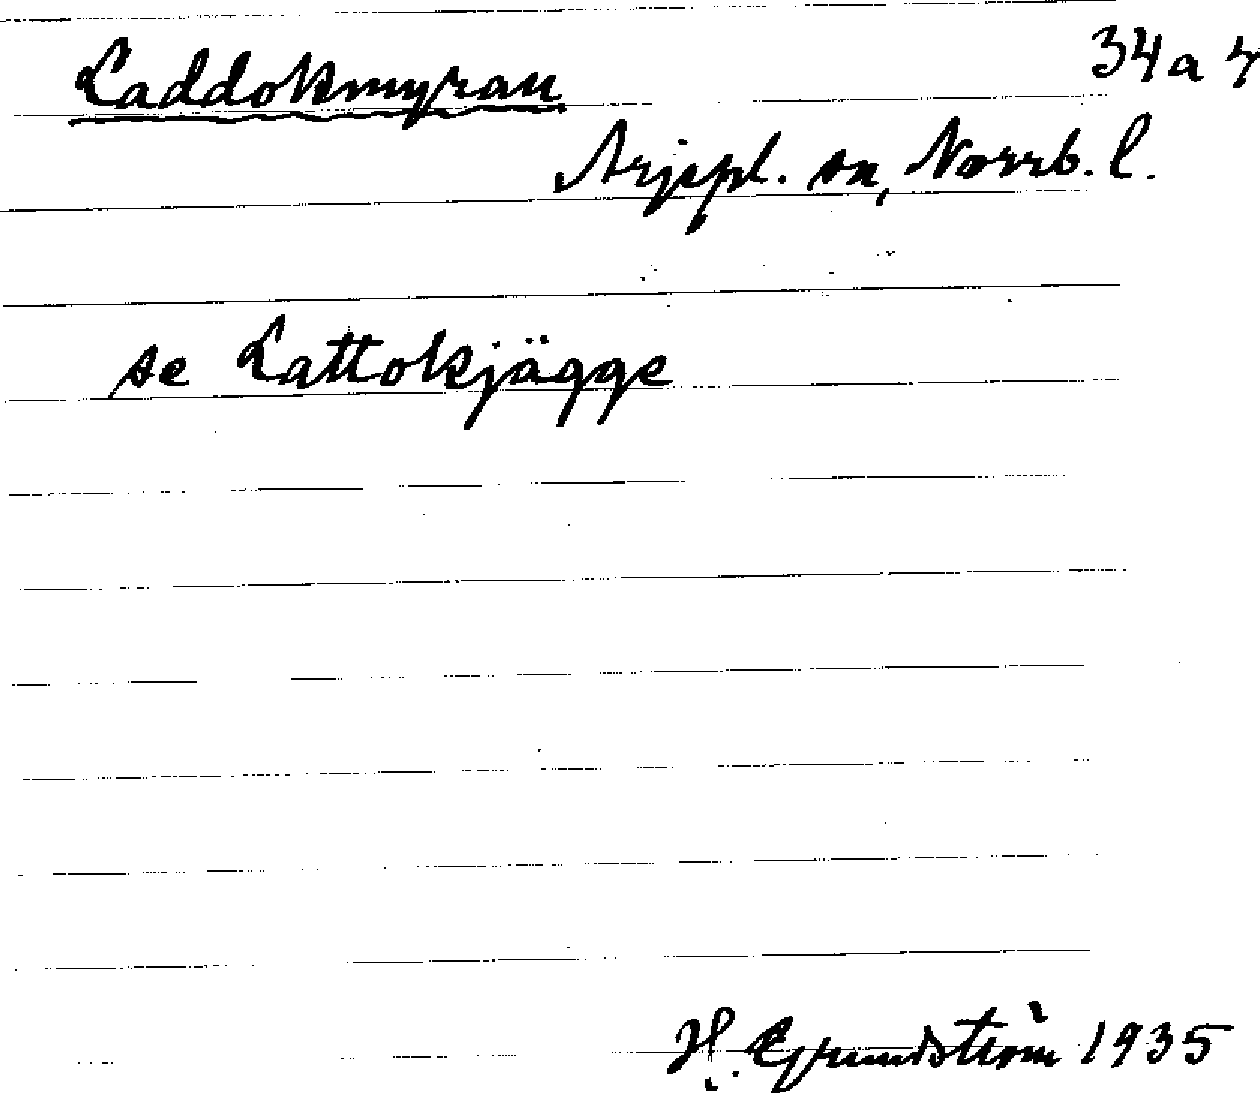 Laddokmyran
34a
Arjepl. sn, Norrb. l.
se Lattokjägge
H. Grundström 1935